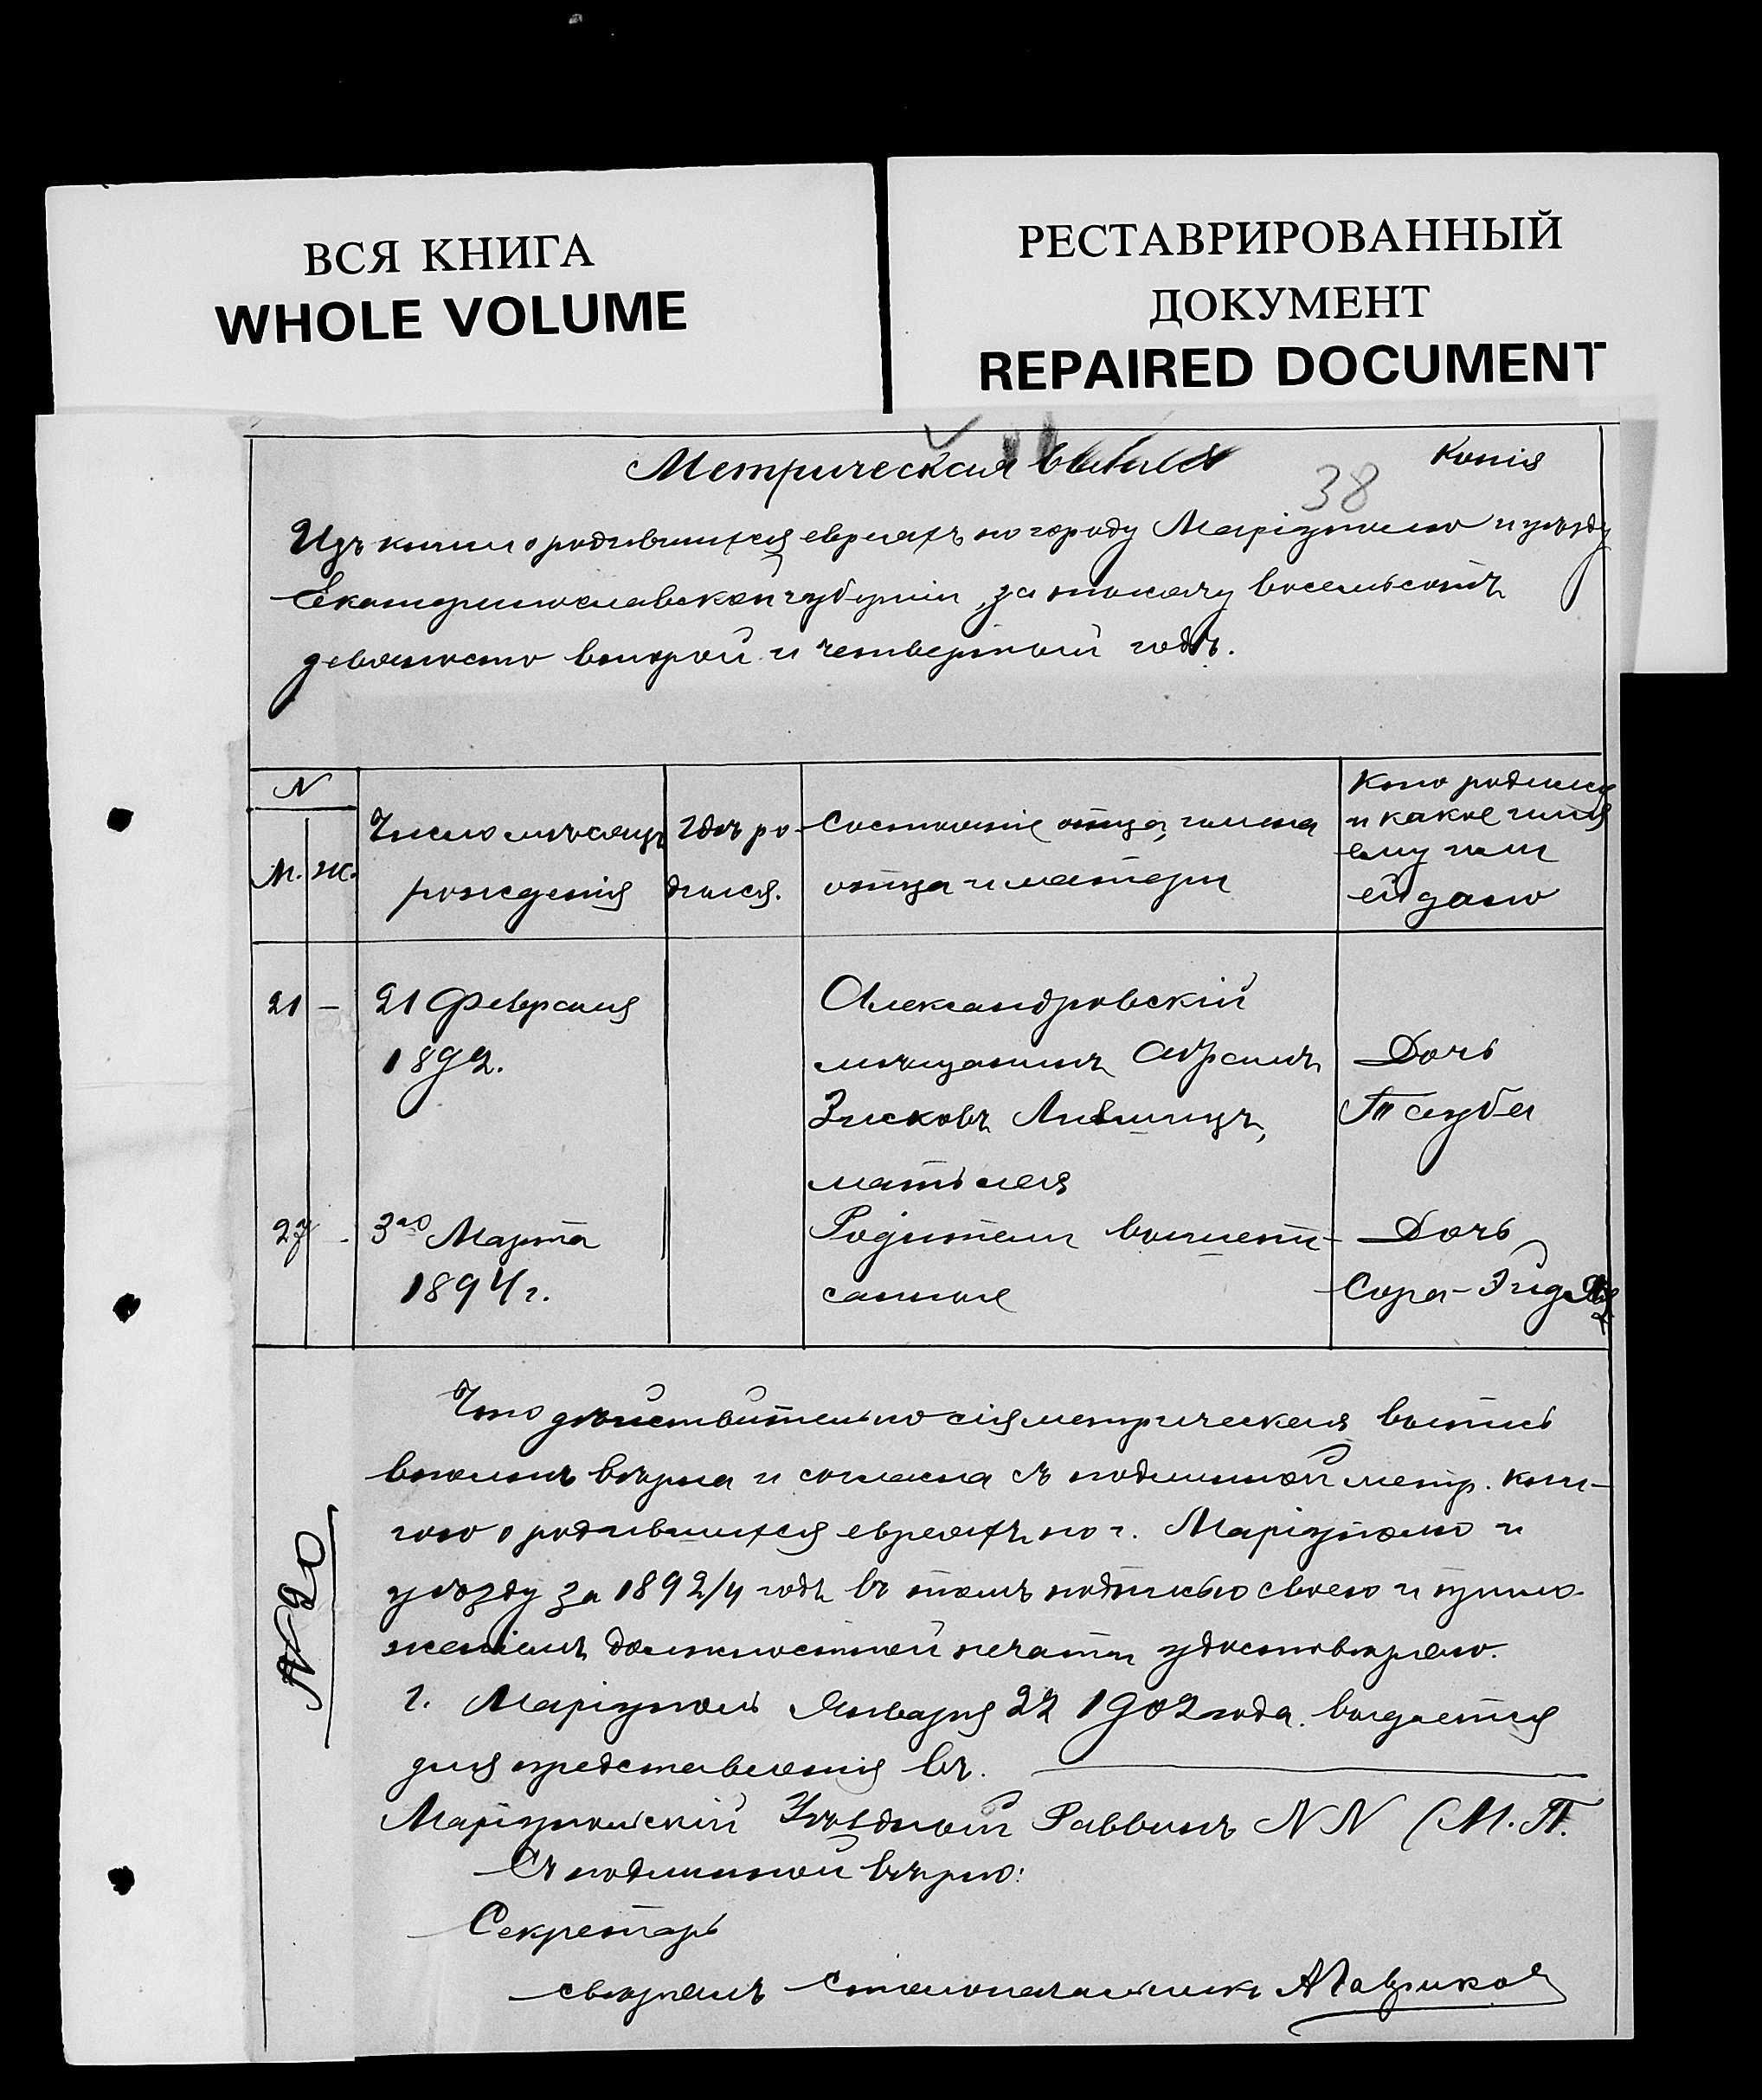 ВСЯ КНИГА
WHOLE VOLUME
РЕСТАВРИРОВАННЫЙ
ДОКУМЕНТ
REPAIRED DOCUMENT
Копія
Метрическая выпись
38
Изъ книги о родившихся евреяхъ по городу Маріуполю и уѣзду
Екатеринославской губерніи, за тысячу восемьсотъ
девяносто второй и четвертый годъ.
N
М. Ж.
Число мѣсяцъ
рожденія
Гдѣ ро-
дился.
Состояніе отца, имена
отца и матери
Кто родился
и какое имя
ему или
ей дано
21 –
21 Февраля
1892.
Александровскій
мѣщанинъ Абрамъ
Зисковъ Лившицъ,
мать Лея
Дочь
Тауба
27 -
3го Марта
1894 г.
Родители вышепи-
санные
Дочь
Сора-
Что дѣйствительно сія метрическая выпись
вполнѣ вѣрна и согласна съ подлинной метр. кни-
гою о родившихся евреяхъ по г. Маріуполю и
уѣзду за 1892/4 годъ въ томъ подписью своею и прило-
женіемъ должностной печати удостовѣряю.
г. Маріуполь Января 22 1902 года. выдается
для представленія въ.
Маріупольскій Уѣздный Раввинъ NN (М.П.
Съ подлинной вѣрно:
Секретарь
свѣрялъ Столоначальникъ
№ 20